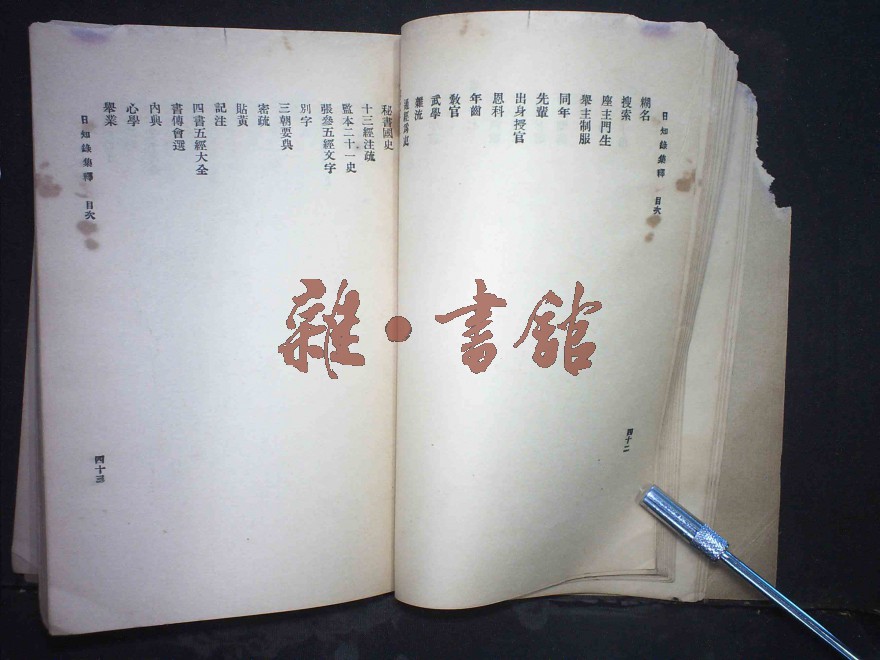 日知錄集釋 目次
糊名
搜索
座主門生
舉主制服
同年
先輩
出身授官
恩科
年齒
教官
武學
雜流
通經爲吏
四十二
秘書國史
十三經注疏
監本二十一史
張參五經文字
別字
三朝要典
密疏
貼黃
記注
四書五經大全
書傳會選
內典
心學
舉業
日知錄集釋 目次
四十三
雜·書館